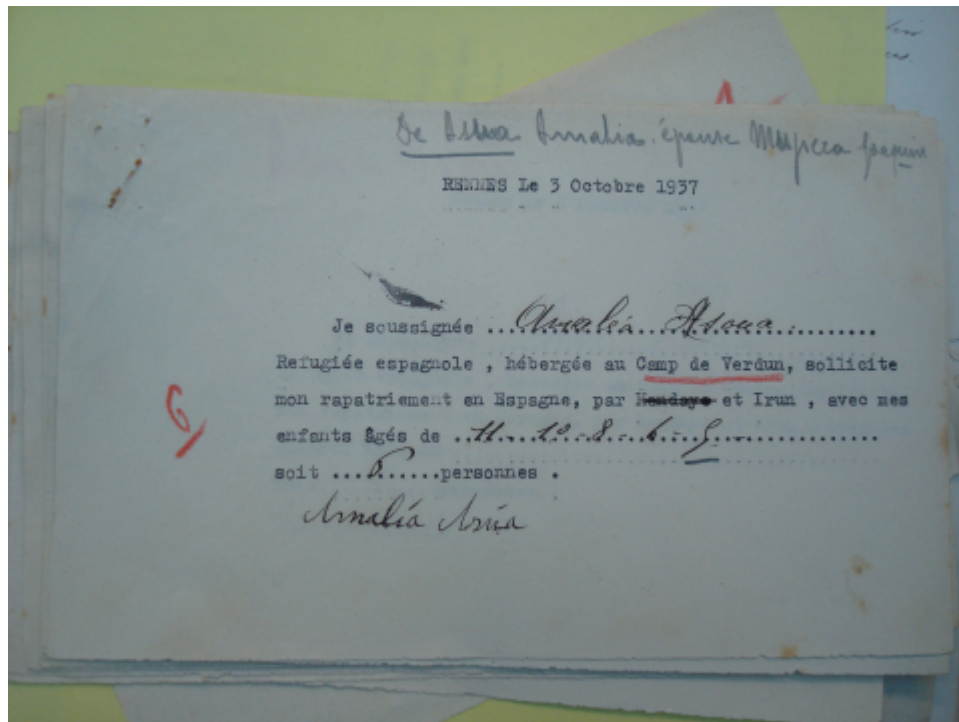 De Amalia. épouse Joaquin
RENNES Le 3 Octobre 1937
Je soussignée ...Amalia...Asoua...............
Refugiée espagnole , hébergée au Camp de Verdun, sollicite
mon rapatriement en Espagne, par Hendaye et Irun , avec mes
enfants âgés de ..11..10..8..6..5...............
soit ....6......personnes .
Amalía
6